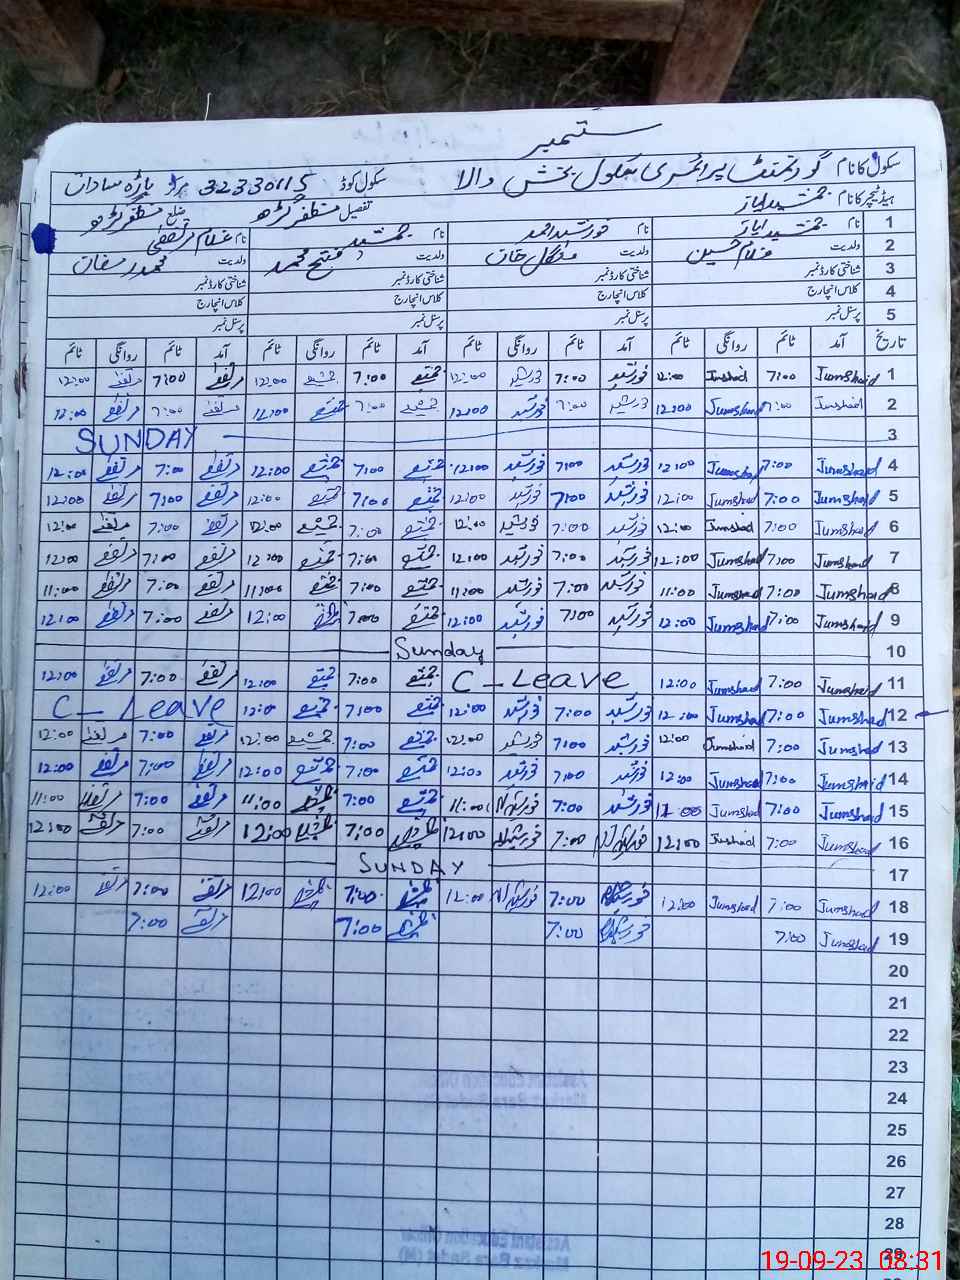 ستمبر
سکول کا نام گورنمنٹ پرائمری سکول بخش والا سکول کوڈ 32330115 مرکز باڑہ سادات
ہیڈ ٹیچر کا نام جمشید ایاز تفصیل مظفر گڑھ ضلع مظفر گڑھ
1 نام جمشید ایاز نام خورشید احمد نام جمشید نام غلام مرتضیٰ
2 ولدیت غلام حسین ولدیت خان ولدیت فتح محمد ولدیت محمد رمضان
3 شناختی کارڈ نمبر شناختی کارڈ نمبر شناختی کارڈ نمبر شناختی کارڈ نمبر
4 کلاس انچارج کلاس انچارج کلاس انچارج کلاس انچارج
5 پرسنل نمبر پرسنل نمبر پرسنل نمبر پرسنل نمبر
تاریخ آمد ٹائم روانگی ٹائم آمد ٹائم روانگی ٹائم آمد ٹائم روانگی ٹائم آمد ٹائم روانگی ٹائم
1 Jumshaid 7:00 Jmshaid 12:00 خورشید 7:00 خورشید 12:00 جمشید 7:00 جمشید 12:00 مرتضیٰ 7:00 مرتضیٰ 12:00
2 Jumshaid 7:00 Jumshaid 12:00 خورشید 7:00 خورشید 12:00 جمشید 7:00 جمشید 12:00 مرتضیٰ 7:00 مرتضیٰ 12:00
3 SUNDAY
4 Jumshaid 7:00 Jumshaid 12:00 خورشید 7:00 خورشید 12:00 جمشید 7:00 جمشید 12:00 مرتضیٰ 7:00 مرتضیٰ 12:00
5 Jumshaid 7:00 Jumshaid 12:00 خورشید 7:00 خورشید 12:00 جمشید 7:00 جمشید 12:00 مرتضیٰ 7:00 مرتضیٰ 12:00
6 Jumshaid 7:00 Jumshaid 12:00 خورشید 7:00 خورشید 12:00 جمشید 7:00 جمشید 12:00 مرتضیٰ 7:00 مرتضیٰ 12:00
7 Jumshaid 7:00 Jumshaid 12:00 خورشید 7:00 خورشید 12:00 جمشید 7:00 جمشید 12:00 مرتضیٰ 7:00 مرتضیٰ 12:00
8 Jumshaid 7:00 Jumshaid 11:00 خورشید 7:00 خورشید 11:00 جمشید 7:00 جمشید 11:00 مرتضیٰ 7:00 مرتضیٰ 11:00
9 Jumshaid 7:00 Jumshaid 12:00 خورشید 7:00 خورشید 12:00 جمشید 7:00 12:00 مرتضیٰ 7:00 مرتضیٰ 12:00
10 Sunday
11 Jumshaid 7:00 Jumshaid 12:00 C-Leave جمشید 7:00 جمشید 12:00 مرتضیٰ 7:00 مرتضیٰ 12:00
12 Jumshaid 7:00 Jumshaid 12:00 خورشید 7:00 خورشید 12:00 جمشید 7:00 جمشید 12:00 C-Leave
13 Jumshaid 7:00 Jumshaid 12:00 خورشید 7:00 خورشید 12:00 جمشید 7:00 جمشید 12:00 مرتضیٰ 7:00 مرتضیٰ 12:00
14 Jumshaid 7:00 Jumshaid 12:00 خورشید 7:00 خورشید 12:00 جمشید 7:00 جمشید 12:00 مرتضیٰ 7:00 مرتضیٰ 12:00
15 Jumshaid 7:00 Jumshaid 11:00 خورشید 7:00 خورشید 11:00 جمشید 7:00 جمشید 11:00 مرتضیٰ 7:00 مرتضیٰ 11:00
16 Jumshaid 7:00 Jmshaid 12:00 خورشید 7:00 خورشید 12:00 جمشید 7:00 جمشید 12:00 مرتضیٰ 7:00 مرتضیٰ 12:00
17 SUNDAY
18 Jumshaid 7:00 Jumshaid 12:00 خورشید 7:00 خورشید 12:00 جمشید 7:00 جمشید 12:00 مرتضیٰ 7:00 مرتضیٰ 12:00
19 Jumshaid 7:00 خورشید 7:00 جمشید 7:00 مرتضیٰ 7:00
20
21
22
23
24
25
26
27
28
29
19-09-23 08:31